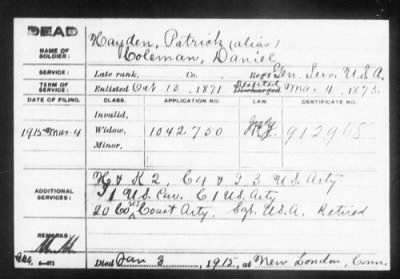 DEAD
NAME OF SOLDIER: Hayden, Patrick (alias)
Coleman, Daniel
SERVICE: Late rank, Co. Reg't Gen. Serv. U.S.A.
TERM OF SERVICE: Enlisted Oct 13, 1871 Deserted Discharged Mar. 4, 1873.
DATE OF FILING. CLASS. APPLICATION NO. LAW. CERTIFICATE NO.
Invalid,
1915 Mar-4 Widow, 1042750 912965
Minor,
H & K 2, C 4 & I 3 U.S. Arty
ADDITIONAL SERVICES: I 1 U.S. Cav. C 1 U.S. Arty
20 Co Coast Arty. Sgt. U.S.A. Retired
REMARKS:
Died Jan 3, 1915, at New London, Conn.